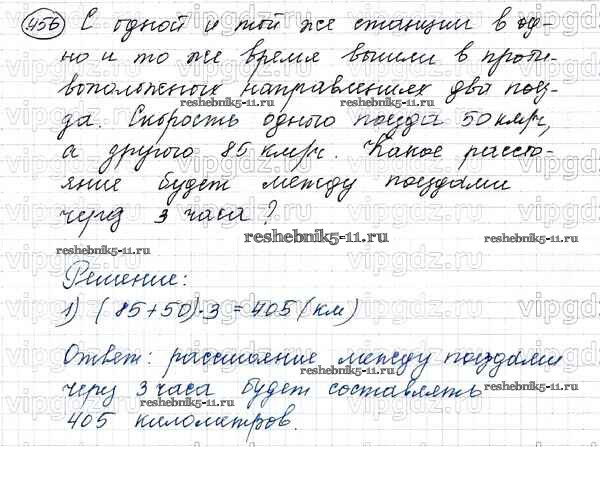 456 С одной и той же станции в од-
но и то же время вышли в проти-
воположных направлениях два поез-
да. Скорость одного поезда 50 км/ч,
а другого 85 км/ч. Какое рассто-
яние будет между поездами
через 3 часа?
Решение:
1) (85+50)·3 = 405 (км)
Ответ: расстояние между поездами
через 3 часа будет составлять
405 километров.
reshebnik5-11.ru
vipgdz.ru